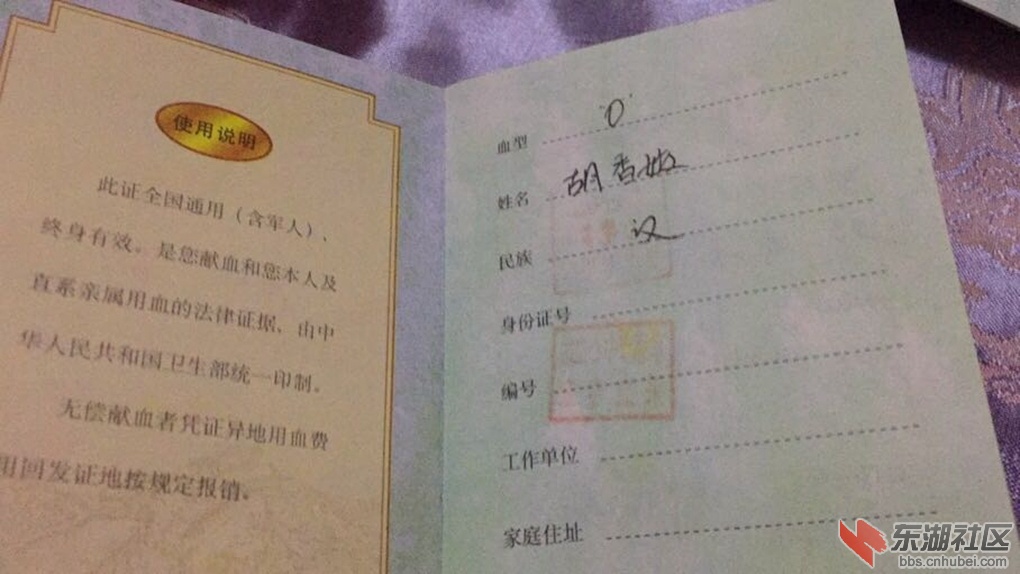 使用说明
此证全国通用（含军人）、
终身有效。是您献血和您本人及
直系亲属用血的法律证据、由中
华人民共和国卫生部统一印制。
无偿献血者凭证异地用血费
用回发证地按规定报销。
血型 "O"
姓名 胡香
民族 汉
身份证号
编号
工作单位
家庭住址
东湖社区
bbs.cnhubei.com